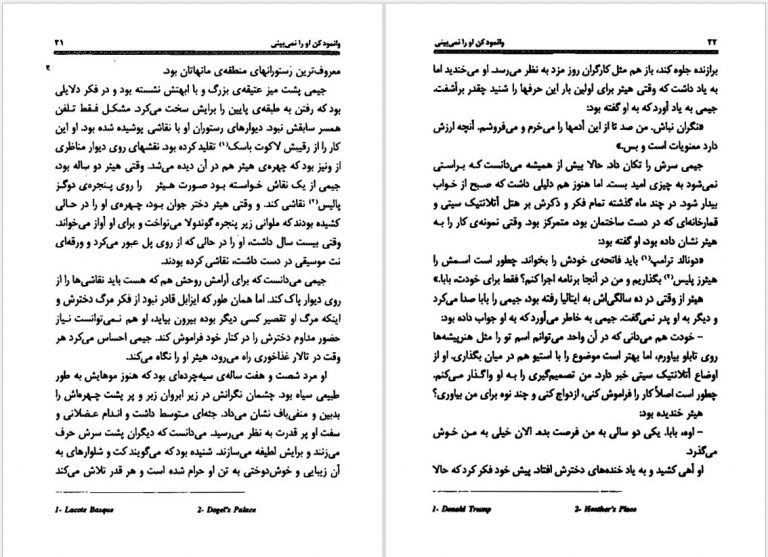 وانمود کن او را نمی‌بینی ۲۱
معروف‌ترین رستورانهای منطقه‌ی مانهاتان بود.
جیمی پشت میز عتیقه‌ی بزرگ و با ابهتش نشسته بود و در فکر دلایلی
بود که رفتن به طبقه‌ی پایین را برایش سخت می‌کرد. مشکل فقط تلفن
همسر سابقش نبود. دیوارهای رستوران او با نقاشی پوشیده شده بود. او این
کار را از رقیبش لاکوت باسک(۱) تقلید کرده بود. نقشهای روی دیوار مناظری
از ونیز بود که چهره‌ی هیثر هم در آن دیده می‌شد. وقتی هیثر دو ساله بود،
جیمی از یک نقاش خواسته بود صورت هیثر را روی پنجره‌ی دوگز
پالیس(۲) نقاشی کند. و وقتی هیثر دختر جوان بود، چهره‌ی او را در حالی
کشیده بودند که ملوانی زیر پنجره گوندولا می‌نواخت و برای او آواز می‌خواند.
وقتی بیست سال داشت، او را در حالی که از روی پل عبور می‌کرد و ورقه‌ای
نت موسیقی در دست داشت، نقاشی کرده بودند.
جیمی می‌دانست که برای آرامش روحش هم که هست باید نقاشی‌ها را از
روی دیوار پاک کند. اما همان طور که ایزابل قادر نبود از فکر مرگ دخترش و
اینکه مرگ او تقصیر کسی دیگر بوده بیرون بیاید، او هم نمی‌توانست نیاز
حضور مداوم دخترش را در کنار خود فراموش کند. جیمی احساس می‌کرد هر
وقت در تالار غذاخوری راه می‌رود، هیثر او را نگاه می‌کند.
او مرد شصت و هفت ساله‌ی سیه‌چرده‌ای بود که هنوز موهایش به طور
طبیعی سیاه بود. چشمان نگرانش در زیر ابروان زبر و پر پشت چهره‌اش را
بدبین و منفی‌باف نشان می‌داد. جثه‌ای متوسط داشت و اندام عضلانی و
سفت او پر قدرت به نظر می‌رسید. می‌دانست که دیگران پشت سرش حرف
می‌زنند و برایش لطیفه می‌سازند. شنیده بود که می‌گویند کت و شلوارهای به
آن زیبایی و خوش‌دوختی به تن او حرام شده است و هر قدر تلاش می‌کند
1- Lacote Basque 2- Dogel's Palace
۲۲ وانمود کن او را نمی‌بینی
برازنده جلوه کند، باز هم مثل کارگران روز مزد به نظر می‌رسد. او می‌خندید اما
به یاد داشت که وقتی هیثر برای اولین بار این حرفها را شنید چقدر برآشفت.
جیمی به یاد آورد که به او گفته بود:
«نگران نباش. من صد تا از این آدمها را می‌خرم و می‌فروشم. آنچه ارزش
دارد معنویات است و بس.»
جیمی سرش را تکان داد. حالا بیش از همیشه می‌دانست که براستی
نمی‌شود به چیزی امید بست. اما هنوز هم دلیلی داشت که صبح از خواب
بیدار شود. در چند ماه گذشته تمام فکر و ذکرش بر هتل آتلانتیک سیتی و
قمارخانه‌ای که در دست ساختمان بود، متمرکز بود. وقتی نمونه‌ی کار را به
هیثر نشان داده بود، او گفته بود:
«دونالد ترامپ(۱) باید فاتحه‌ی خودش را بخواند. چطور است اسمش را
هیثرز پلیس(۲) بگذاریم و من در آنجا برنامه اجرا کنم؟ فقط برای خودت، بابا.»
هیثر از وقتی در ده سالگی‌اش به ایتالیا رفته بود، جیمی را بابا صدا می‌کرد
و دیگر به او پدر نمی‌گفت. جیمی به خاطر می‌آورد که به او جواب داده بود:
- خودت هم می‌دانی که در آن واحد می‌توانم اسم تو را مثل هنرپیشه‌ها
روی تابلو بیاورم، اما بهتر است موضوع را با استیو هم در میان بگذاری. او از
اوضاع آتلانتیک سیتی خبر دارد. من تصمیم‌گیری را به او واگذار می‌کنم.
چطور است اصلاً کار را فراموش کنی، ازدواج کنی و چند نوه برای من بیاوری؟
هیثر خندیده بود:
- اوه، بابا. یکی دو سالی به من فرصت بده. الان خیلی به من خوش
می‌گذرد.
او آهی کشید و به یاد خنده‌های دخترش افتاد. پیش خود فکر کرد که حالا
1- Donald Trump 2- Heather's Place